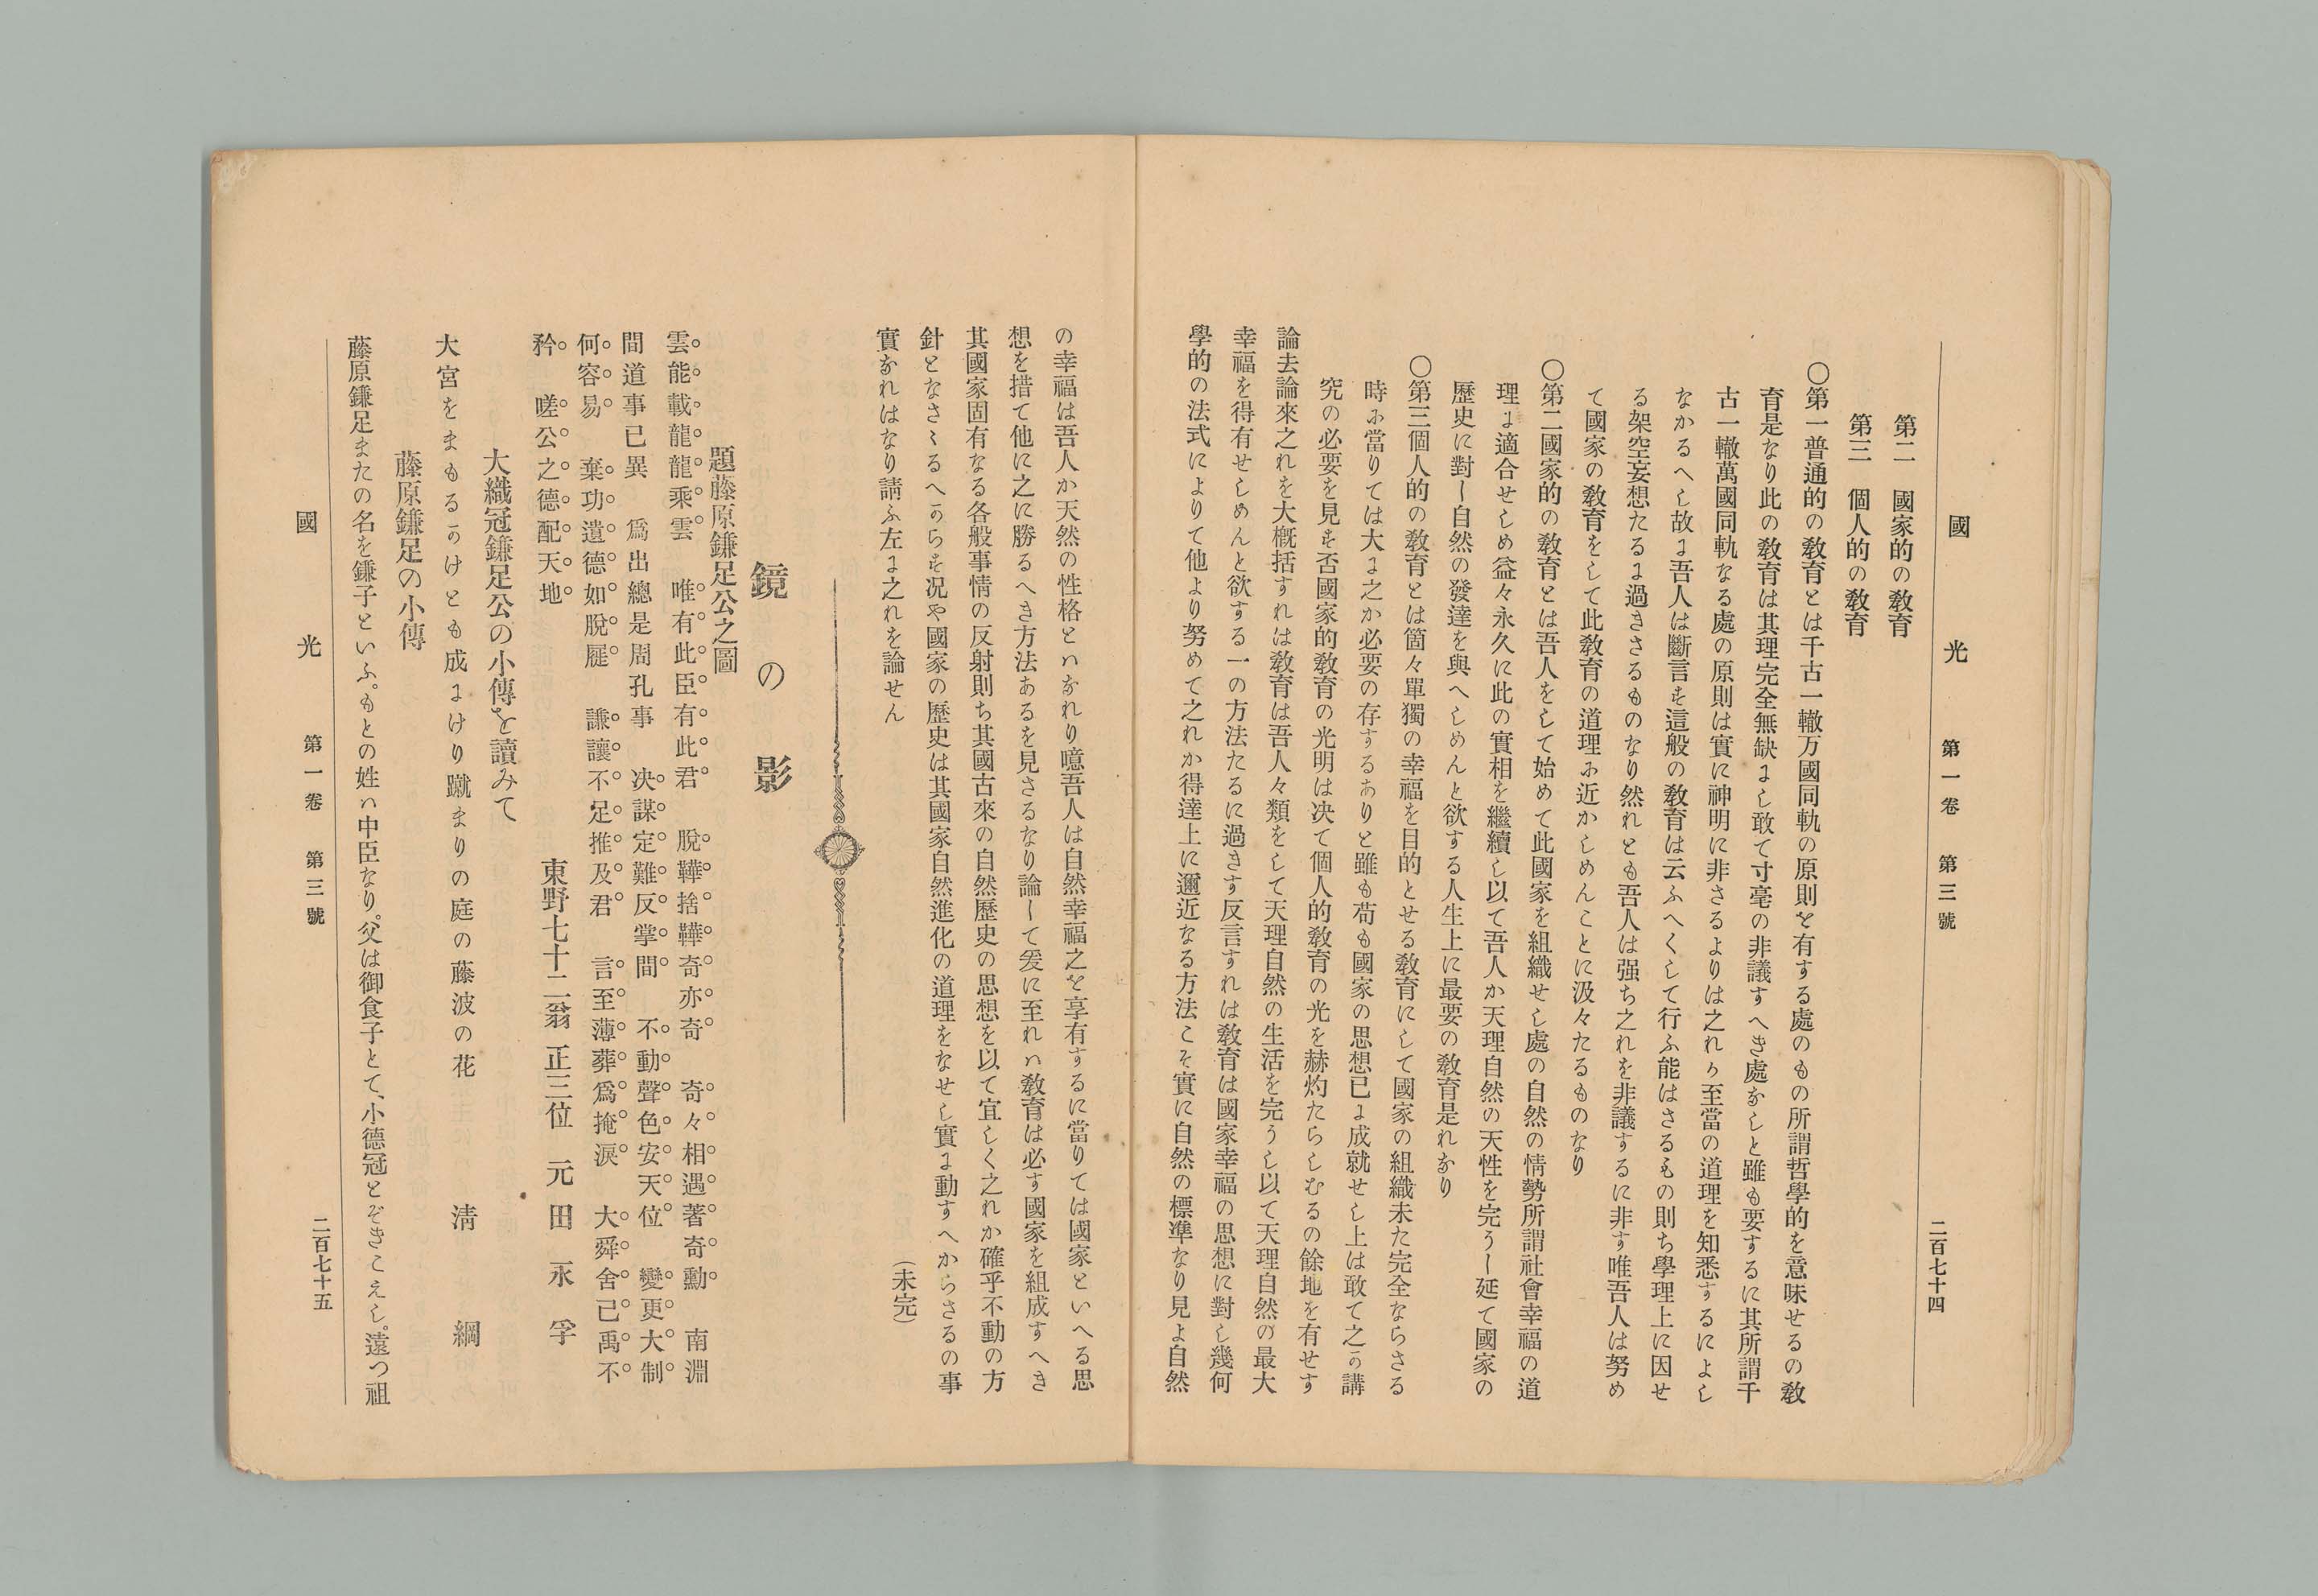 國光 第一卷 第三號 二百七十四
第二 國家的の敎育
第三 個人的の敎育
〇第一普通的の敎育とは千古一轍万國同軌の原則を有する處のもの所謂哲學的を意味せるの敎
育是なり此の敎育は其理完全無缺にし敢て寸毫の非議すへき處なしと雖も要するに其所謂千
古一轍萬國同軌なる處の原則は實に神明に非さるよりは之れか至當の道理を知悉するによし
なかるへし故に吾人は斷言す這般の敎育は云ふへくして行ふ能はさるもの則ち學理上に因せ
る架空妄想たるに過きさるものなり然れとも吾人は强ち之れを非議するに非す唯吾人は努め
て國家の敎育をして此敎育の道理に近かしめんことに汲々たるものなり
〇第二國家的の敎育とは吾人をして始めて此國家を組織せし處の自然の情勢所謂社會幸福の道
理に適合せしめ益々永久に此の實相を繼續し以て吾人か天理自然の天性を完うし延て國家の
歷史に對し自然の發達を與へしめんと欲する人生上に最要の敎育是れなり
〇第三個人的の敎育とは箇々單獨の幸福を目的とせる敎育にして國家の組織未た完全ならさる
時に當りては大に之か必要の存するありと雖も苟も國家の思想已に成就せし上は敢て之か講
究の必要を見す否國家的敎育の光明は决て個人的敎育の光を赫灼たらしむるの餘地を有せす
論去論來之れを大槪括すれは敎育は吾人々類をして天理自然の生活を完うし以て天理自然の最大
幸福を得有せしめんと欲する一の方法たるに過きす反言すれは敎育は國家幸福の思想に對し幾何
學的の法式によりて他より努めて之れか得達上に邇近なる方法こそ實に自然の標準なり見よ自然
の幸福は吾人か天然の性格とハなれり噫吾人は自然幸福之を享有するに當りては國家といへる思
想を措て他に之に勝るへき方法あるを見さるなり論して爰に至れハ敎育は必す國家を組成すへき
其國家固有なる各般事情の反射則ち其國古來の自然歷史の思想を以て宜しく之れか確乎不動の方
針となさゝるへからす况や國家の歷史は其國家自然進化の道理をなせし實に動すへからさるの事
實なれはなり請ふ左に之れを論せん
(未完)
鏡の影
題藤原鎌足公之圖
雲能載龍龍乘雲 唯有此臣有此君 脫鞾捨鞾奇亦奇 奇々相遇著奇勳 南淵
間道事已異 爲出總是周孔事 决謀定難反掌間 不動聲色安天位 變更大制
何容易 棄功遺德如脫屣 謙讓不足推及君 言至薄葬爲掩淚 大舜舍己禹不
矜 嗟公之德配天地
東野七十二翁 正三位 元田永孚
大織冠鎌足公の小傳を讀みて
大宮をまもるかけとも成にけり蹴まりの庭の藤波の花 淸綱
藤原鎌足の小傳
藤原鎌足またの名を鎌子といふ。もとの姓ハ中臣なり。父は御食子とて、小德冠とぞきこえし。遠つ祖
國光 第一卷 第三號 二百七十五